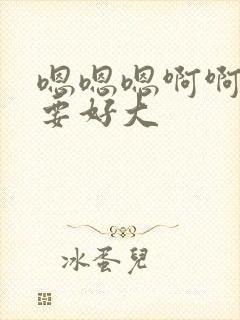 嗯嗯嗯啊啊
要好大
冰蛋兒